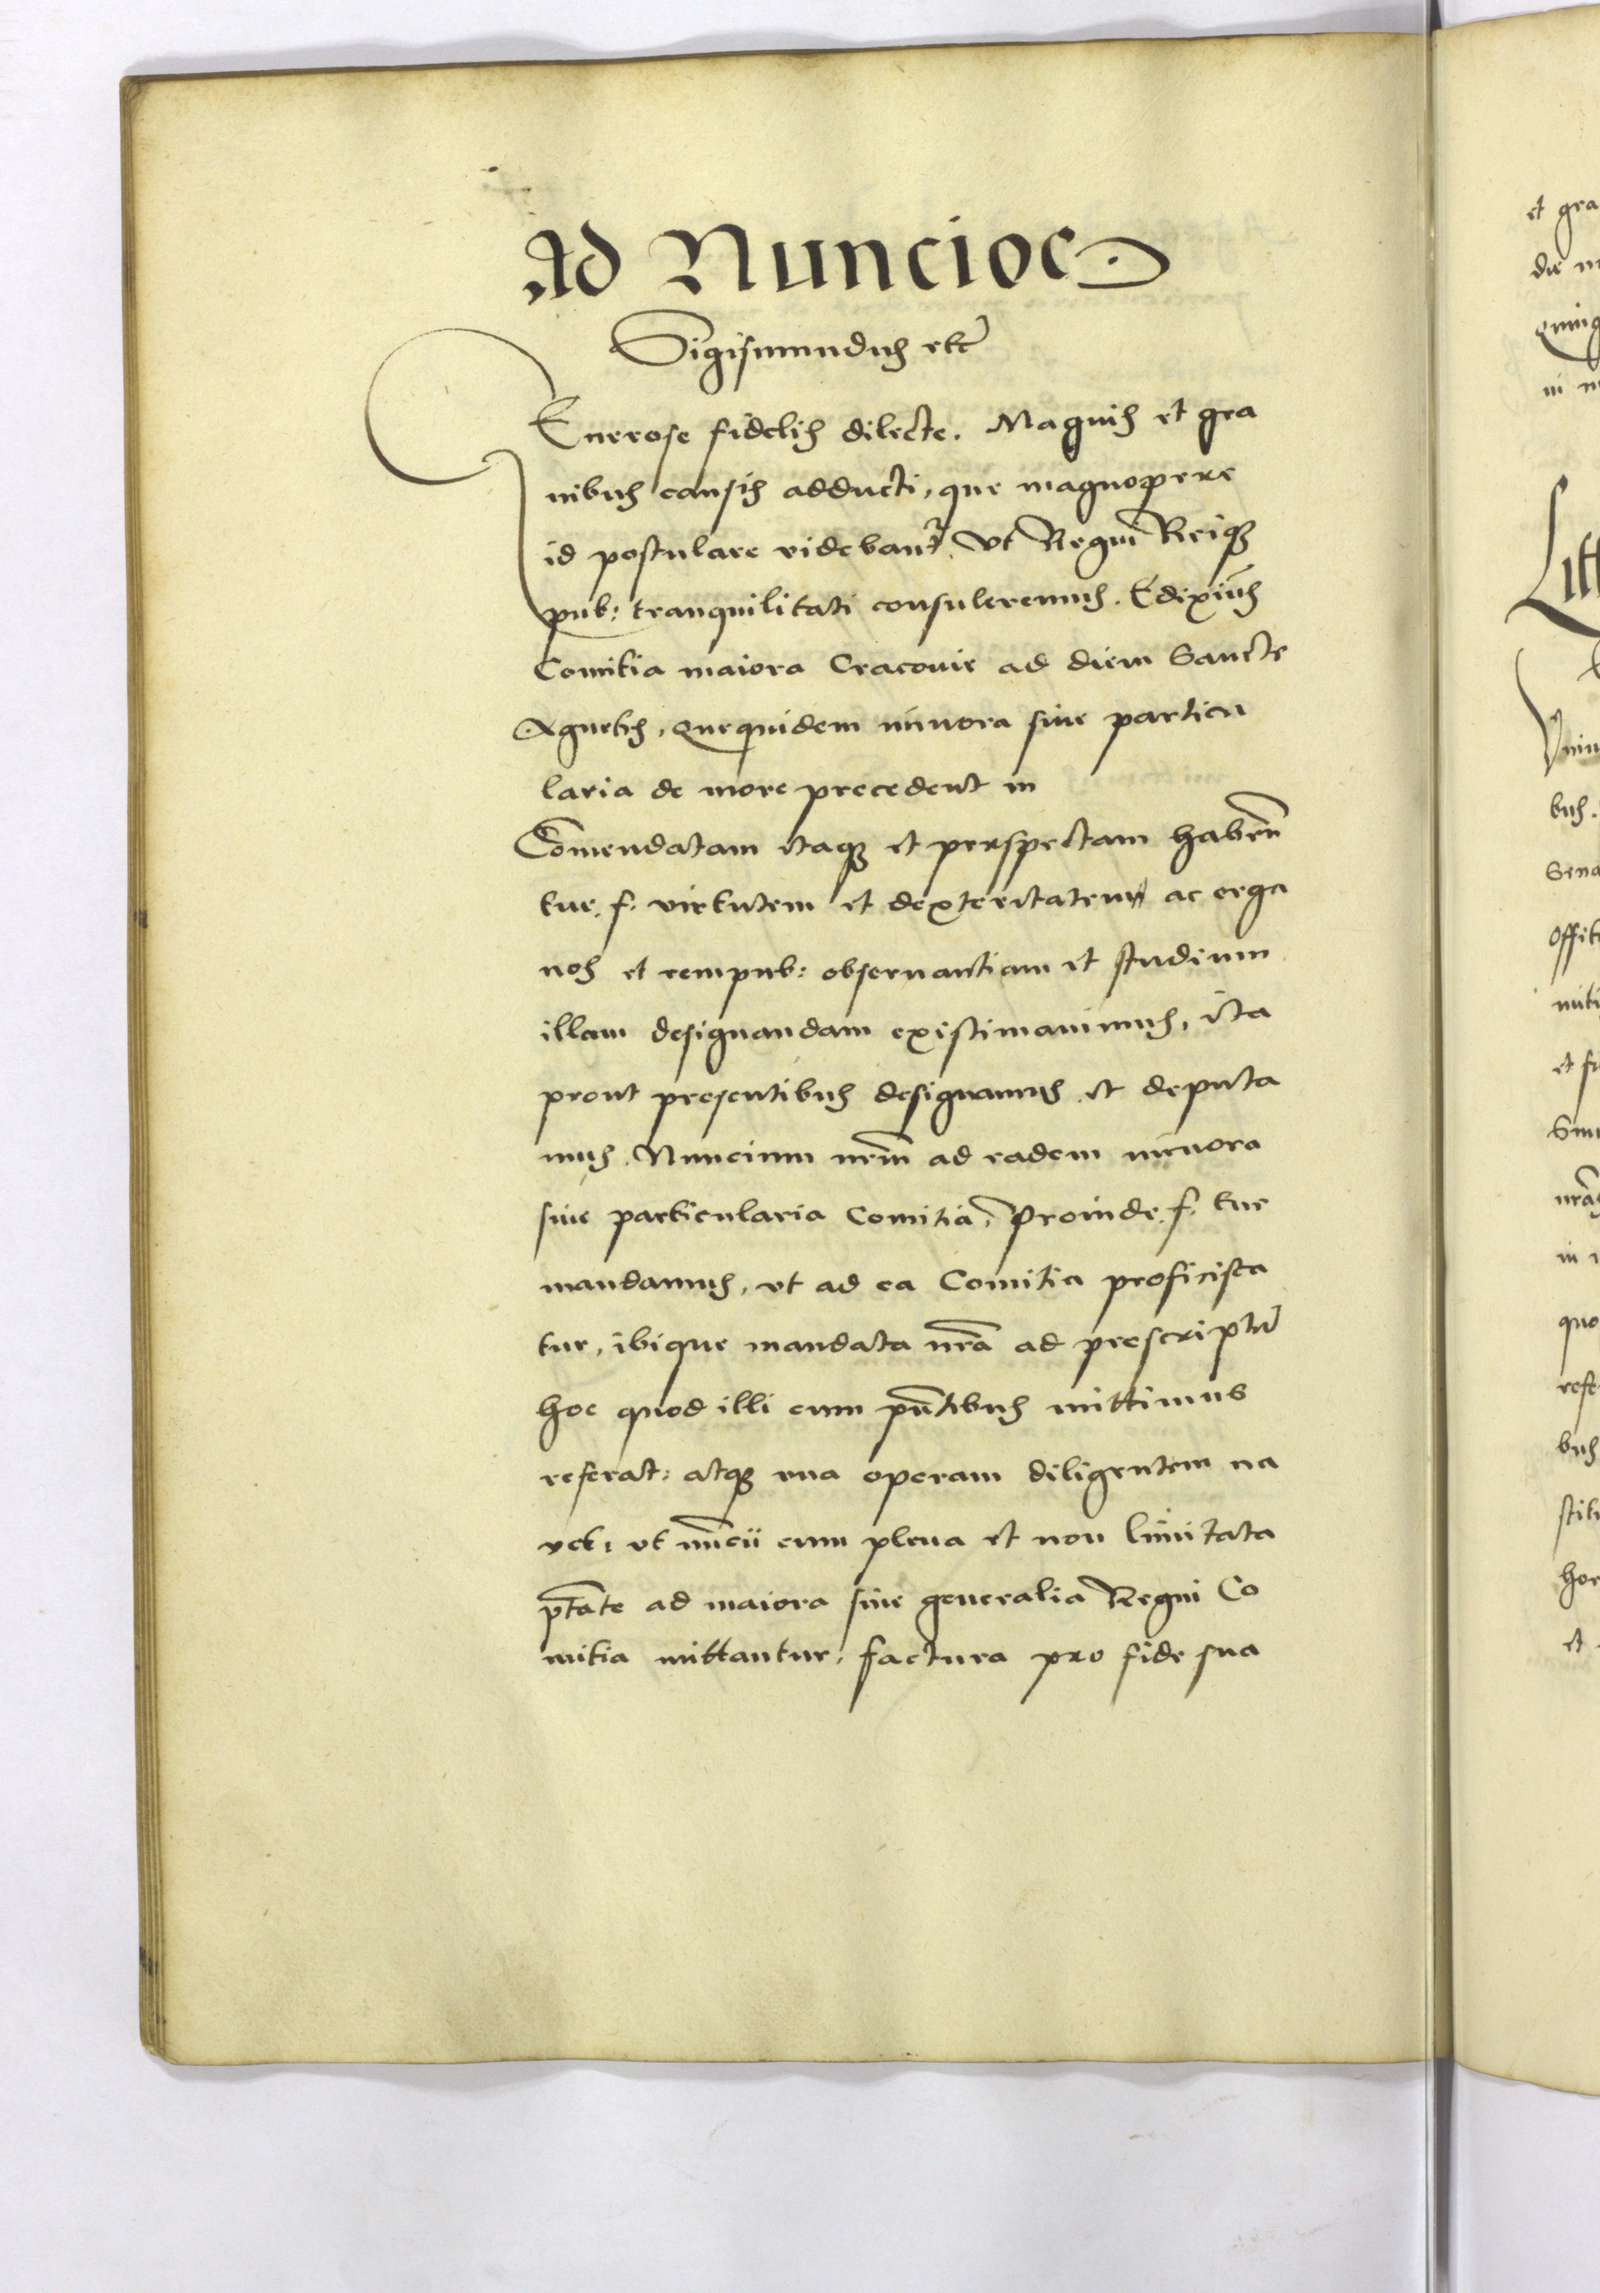 Ad Nuncios
Sigismundus etc̃
Generose fidelis dilecte. Magnis et gra
uibus causis adducti, que magnopere
id postulare videbant᷑, vt Regni Reiq₃
pub: tranquilitati consuleremus. Edixim̃s
Comitia maiora Cracouie ad diem Sancte
Agnetis, quequidem minora siue particu
laria de more precedent in
Comendatam itaq₃ et perspectam habeñ
tue. f. virtutem et dexteritatem ac erga
nos et rempub: obseruantiam et studium
illam designandam existimauimus, ita
prout presentibus designamus et deputa
mus. Nuncium nr̃m ad eadem minora
siue particularia Comitia, Proinde. f. tue
mandamus, vt ad ea Comitia proficisca
tur, ibique mandata nr̃a ad prescriptũ
hoc quod illi cum pñtibus mittimus
referat: atq₃ vna operam diligentem na
vet, vt nũcii cum plena et non limitata
ptãte ad maiora siue generalia Regni Co
mitia mittantur, factura pro fide sua
et gra
die
in
Litt
bus.
Sena
offit
et
in
quo
refe
bus
hoc
et